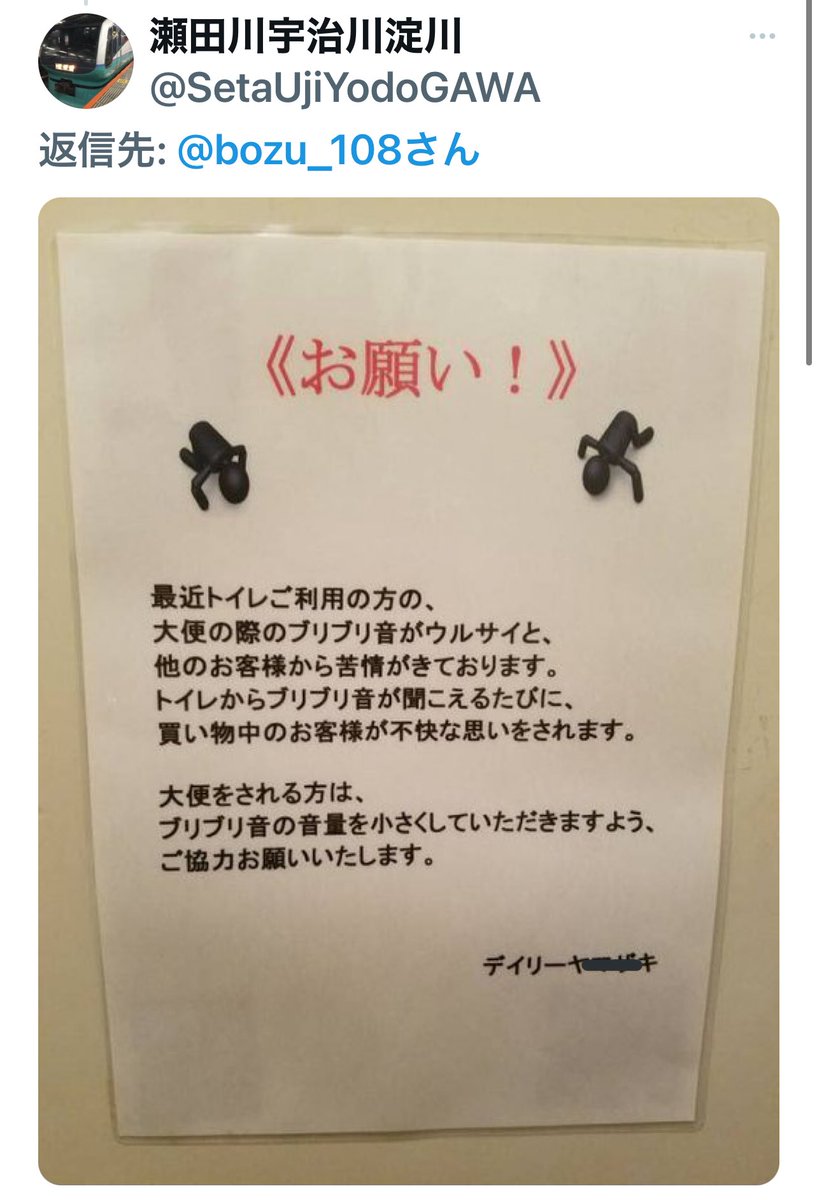 瀬田川宇治川淀川
@SetaUjiYodoGAWA
返信先: @bozu_108さん
《お願い！》
最近トイレご利用の方の、
大便の際のブリブリ音がウルサイと、
他のお客様から苦情がきております。
トイレからブリブリ音が聞こえるたびに、
買い物中のお客様が不快な思いをされます。
大便をされる方は、
ブリブリ音の音量を小さくしていただきますよう、
ご協力お願いいたします。
デイリーヤ
キ